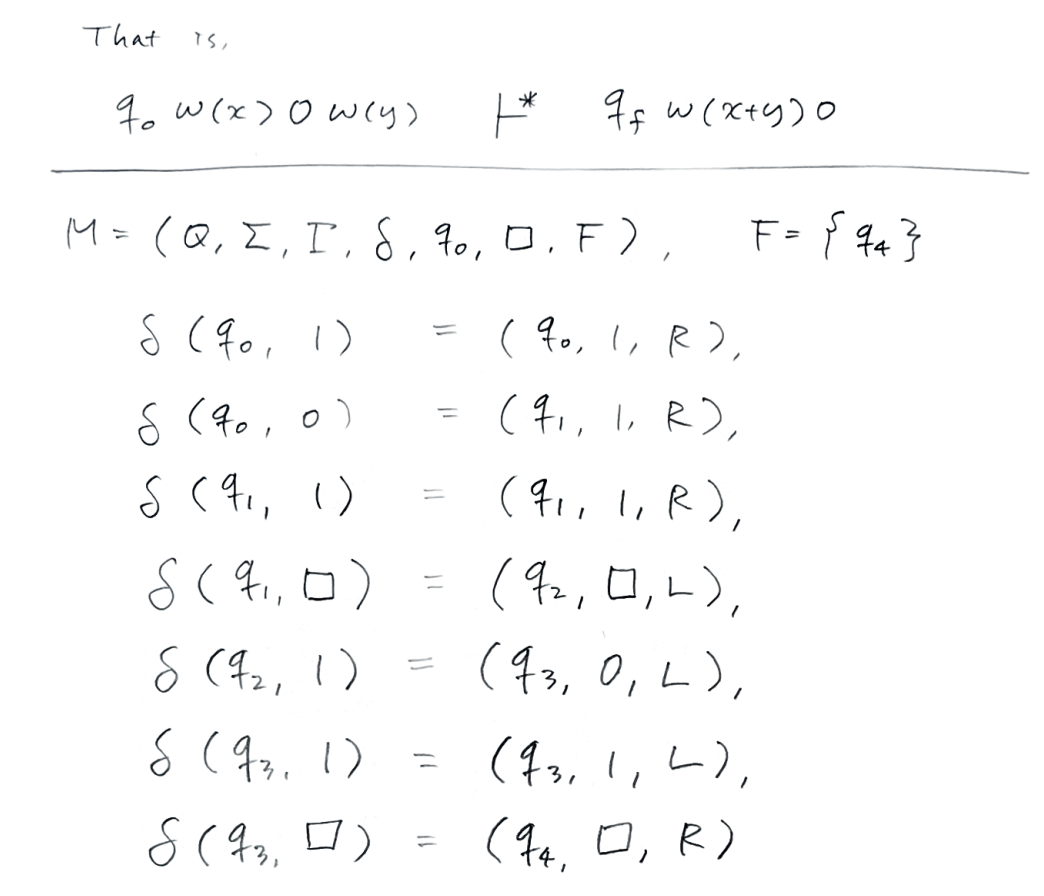 That is,
q₀ w(x) 0 w(y) ⊢* q_f w(x+y) 0
M = (Q, Σ, Γ, δ, q₀, □, F), F = {q₄}
δ(q₀, 1) = (q₀, 1, R),
δ(q₀, 0) = (q₁, 1, R),
δ(q₁, 1) = (q₁, 1, R),
δ(q₁, □) = (q₂, □, L),
δ(q₂, 1) = (q₃, 0, L),
δ(q₃, 1) = (q₃, 1, L),
δ(q₃, □) = (q₄, □, R)